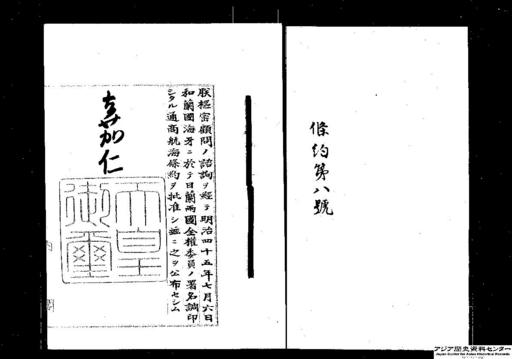 條約第八號
朕樞密顧問ノ諮詢ヲ經テ明治四十五年七月六日
和蘭國海牙ニ於テ日蘭兩國全權委員ノ署名調印
シタル通商航海條約ヲ批准シ茲ニ之ヲ公布セシム
嘉仁
天皇
御璽
内閣
アジア歴史資料センター
Japan Center for Asian Historical Records